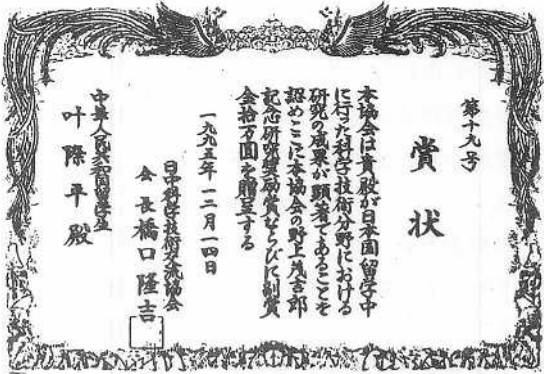 第十九号
賞状
本協会は貴殿が日本国留学中
に行った科学技術分野における
研究の成果が顕著であることを
認めここに本協会の野上茂吉郎
記念研究奨励賞ならびに副賞
金拾万圓を贈呈する
一九九五年一二月一四日
日中科学技術交流協会
会長橋口隆吉
中華人民共和国留学生
叶際平殿